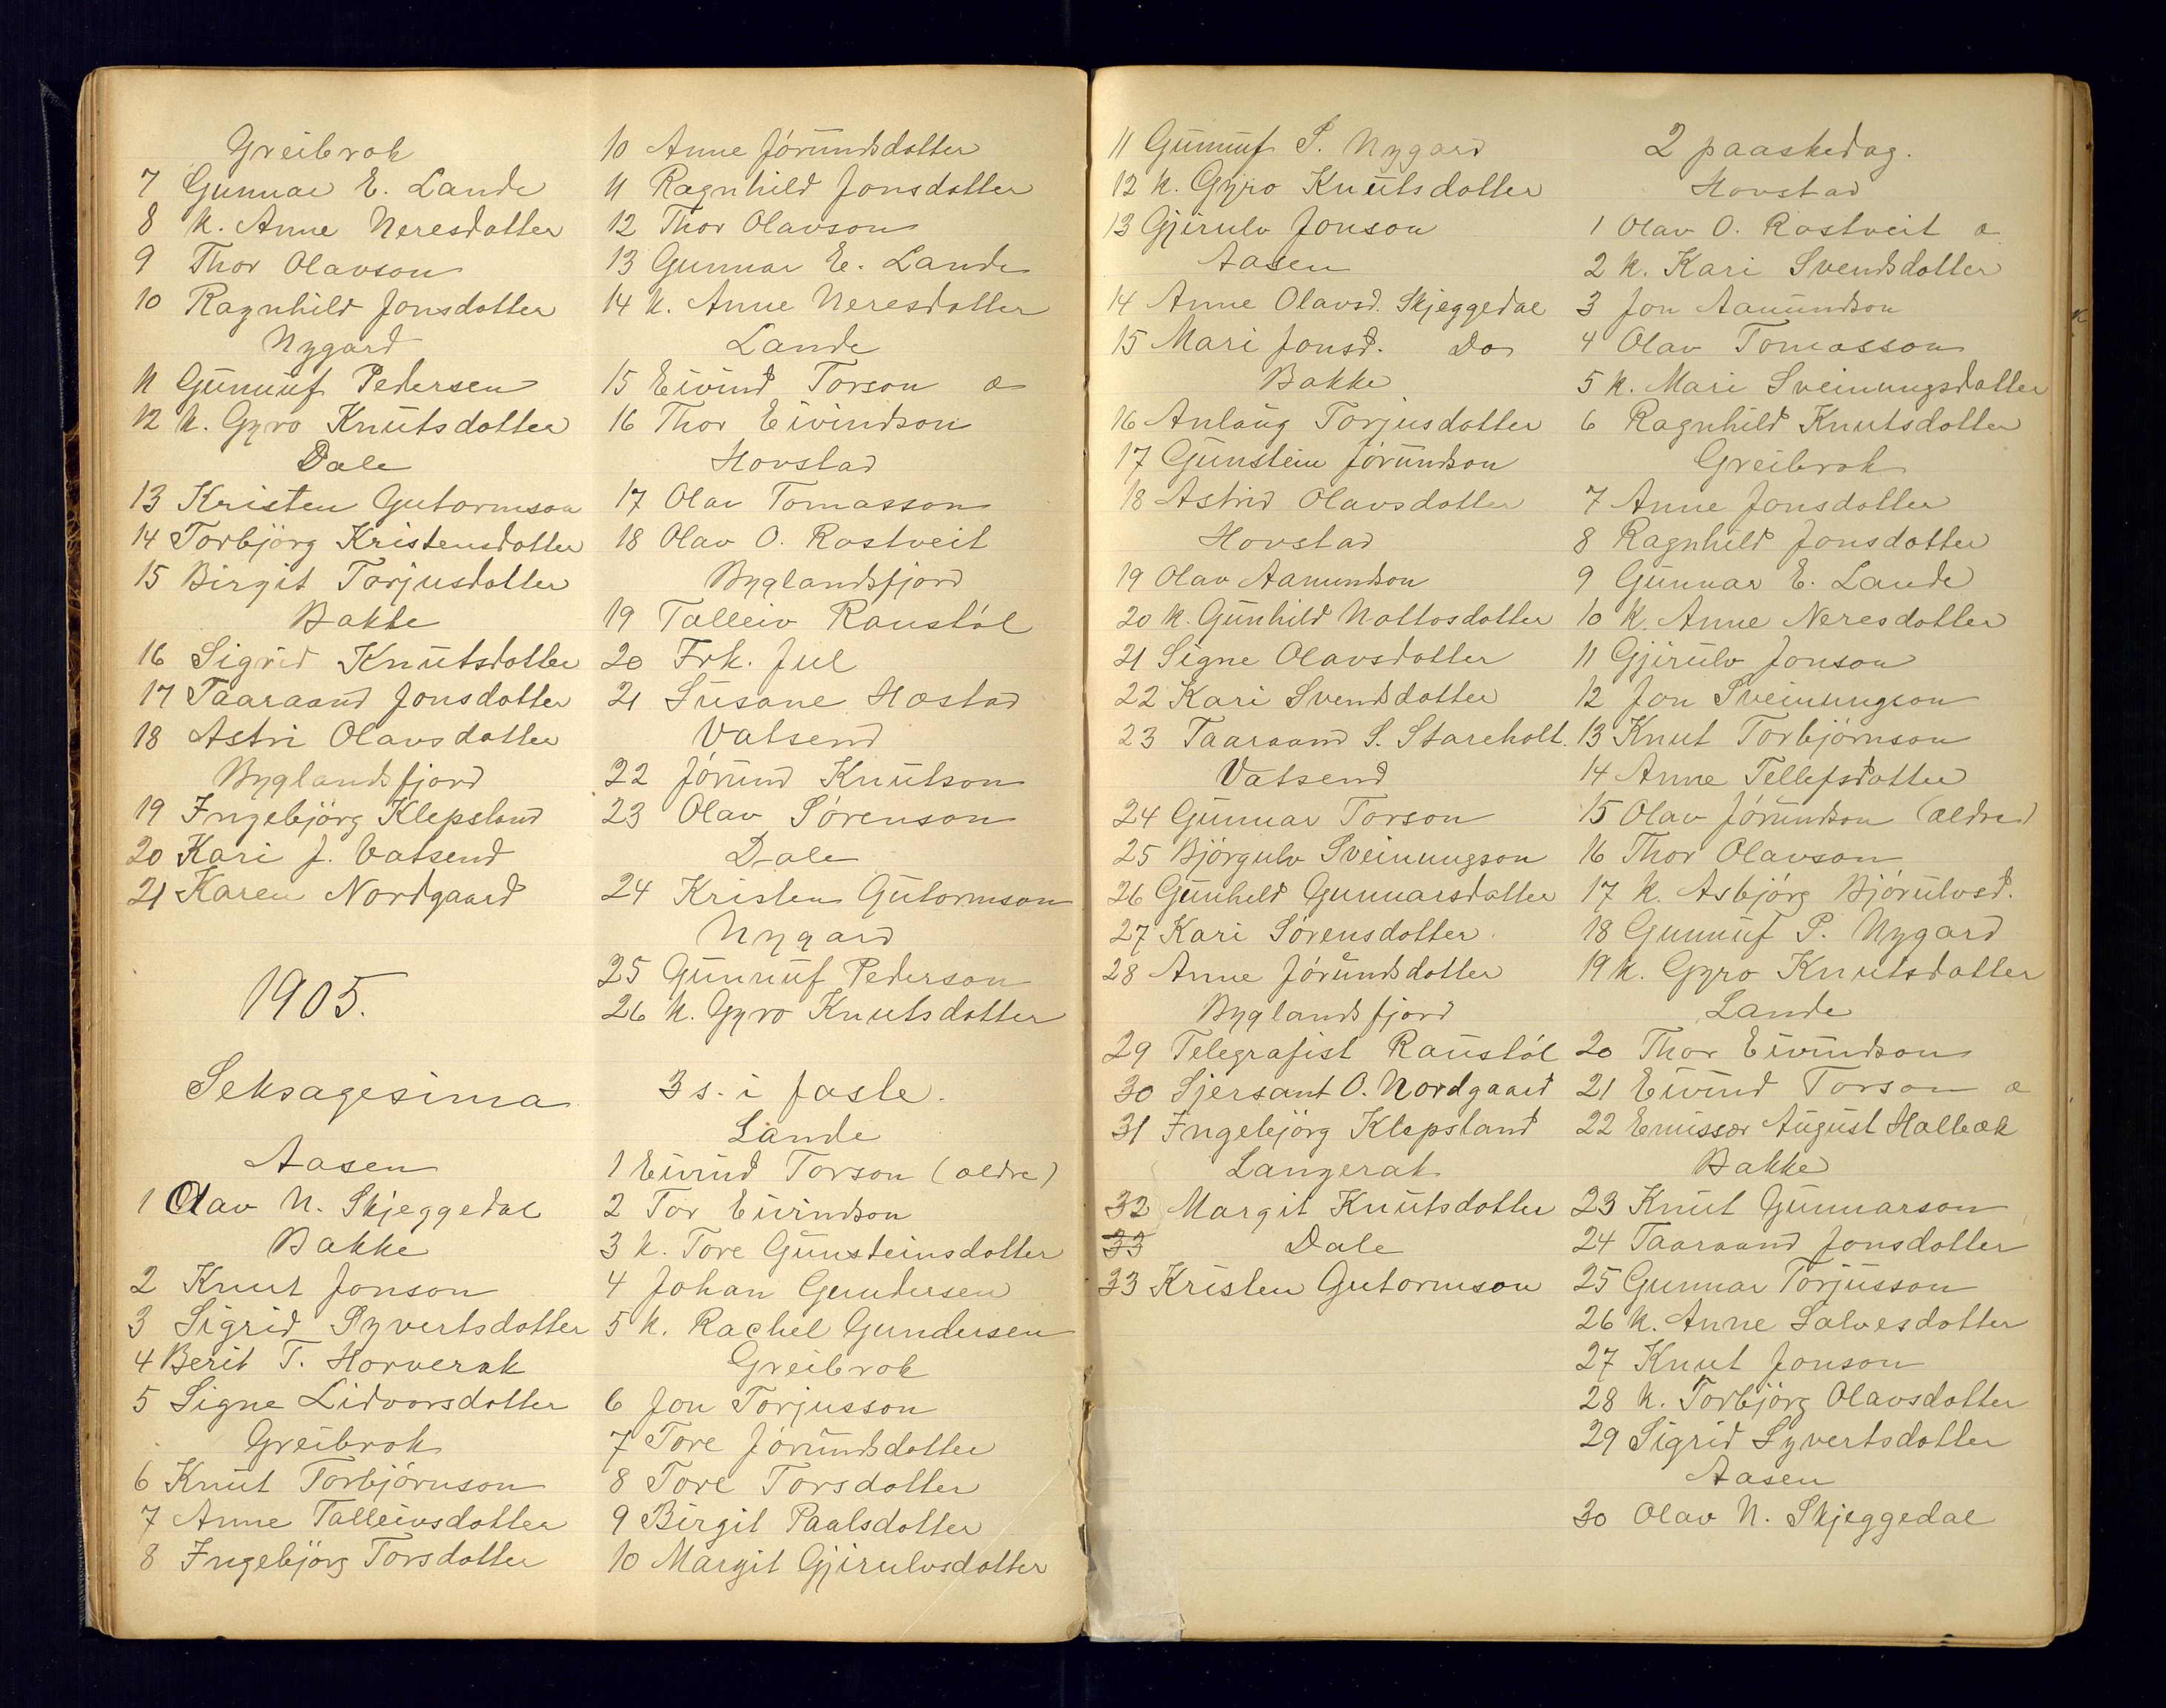 Greibrok
7 Gunnar E. Lande
8 K. Anne Neresdotter
9 Thor Olavson
10 Ragnhild Jonsdotter
Nygard
11 Gunnuf Pedersen
12 K. Gyro Knutsdotter
Dale
13 Kristen Gutormson
14 Torbjörg Kristensdotter
15 Birgit Torjusdotter
Bakke
16 Sigrid Knutsdotter
17 Taaraand Jonsdotter
18 Astri Olavsdotter
Byglandsfjord
19 Ingebjörg Klepsland
20 Kari J. Vatsend
21 Karen Nordgaard
1905.
Seksagesima
Aasen
1 Olav N. Skjeggedal
Bakke
2 Knut Jonson
3 Sigrid Syvertsdotter
4 Berit T. Horverak
5 Signe Lidvorsdotter
Greibrok
6 Knut Torbjörnson
7 Anne Talleivsdotter
8 Ingebjörg Torsdotter
10 Anne Jörundsdotter
11 Ragnhild Jonsdotter
12 Thor Olavson
13 Gunnar E. Lande
14 K. Anne Neresdotter
Lande
15 Eivind Torson æ
16 Thor Eivindson
Hovstad
17 Olav Tomasson
18 Olav O. Rostveit
Byglandsfjord
19 Talleiv Raustöl
20 Frk. Jul
21 Susane Hostad
Vatsend
22 Jörund Knutson
23 Olav Sörenson
Dale
24 Kristen Gutormson
Nygard
25 Gunnuf Pederson
26 K. Gyro Knutsdotter
3 s. i faste.
Lande
1 Eivind Torson (ældre)
2 Tor Eivindson
3 K. Tore Gunsteinsdotter
4 Johan Gundersen
5 K. Rachel Gundersen
Greibrok
6 Jon Torjusson
7 Tore Jörundsdotter
8 Tore Torsdotter
9 Birgit Paalsdotter
10 Margit Gjirulvsdotter
11 Gunnuf P. Nygard
12 K. Gyro Knutsdotter
13 Gjirulv Jonson
Aasen
14 Anne Olavsd. Skjeggedal
15 Mari Jonsd. Do
Bakke
16 Anlaug Torjusdotter
17 Gunstein Jörundson
18 Astrid Olavsdotter
Hovstad
19 Olav Aamundson
20 K. Gunhild Nottosdotter
21 Signe Olavsdotter
22 Kari Svendsdotter
23 Taaraand S. Stareholt.
Vatsend
24 Gunnar Torson
25 Björgulv Sveinungson
26 Gunhild Gunnarsdotter
27 Kari Sörensdotter
28 Anne Jörundsdotter
Byglandsfjord
29 Telegrafist Raustöl
30 Sjersant O. Nordgaard
31 Ingebjörg Klepsland
Langerak
32 Margit Knutsdotter
33 Dale
33 Kristen Gutormson
2 paaskedag.
Hovstad
1 Olav O. Rostveit æ
2 K. Kari Svendsdotter
3 Jon Aamundson
4 Olav Tomasson
5 K. Mari Sveinungsdotter
6 Ragnhild Knutsdotter
Greibrok
7 Anne Jonsdotter
8 Ragnhild Jonsdotter
9 Gunnar E. Lande
10 K. Anne Neresdotter
11 Gjirulv Jonson
12 Jon Sveinungson
13 Knut Torbjörnson
14 Anne Tellefsdotter
15 Olav Jörundson (ældre)
16 Thor Olavson
17 K. Asbjörg Björulvsd.
18 Gunnuf P. Nygard
19 K. Gyro Knutsdotter
Lande
20 Thor Eivindson
21 Eivind Torson æ
22 Emissær August Halbæk
Bakke
23 Knut Gunnarson
24 Taaraand Jonsdotter
25 Gunnar Torjusson
26 K. Anne Salvesdotter
27 Knut Jonson
28 K. Torbjörg Olavsdotter
29 Sigrid Syvertsdotter
Aasen
30 Olav N. Skjeggedal